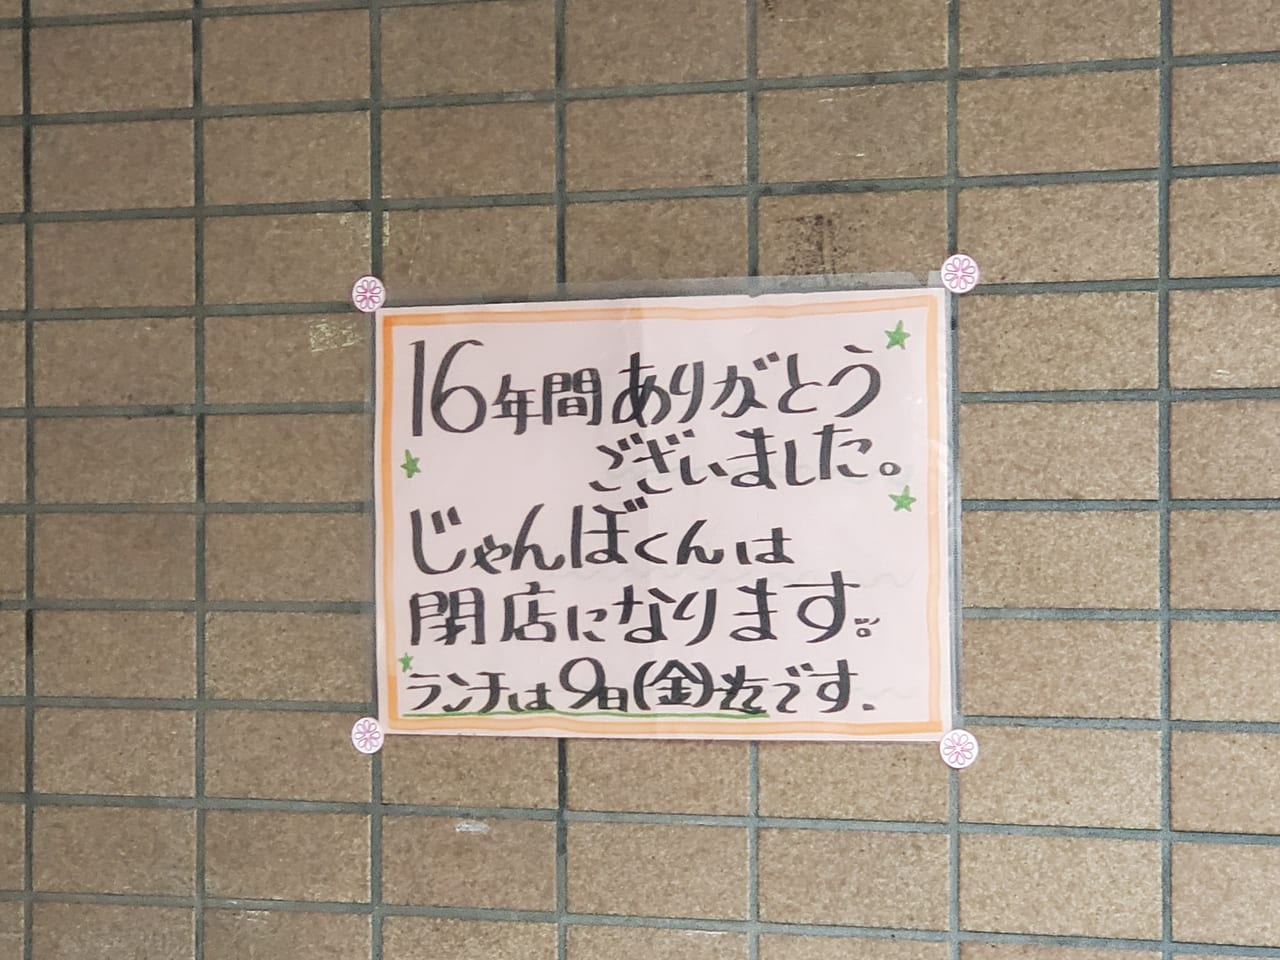 16年間ありがとう
ございました。
じゃんぼくんは
閉店になります。
ランチは9日(金)までです.